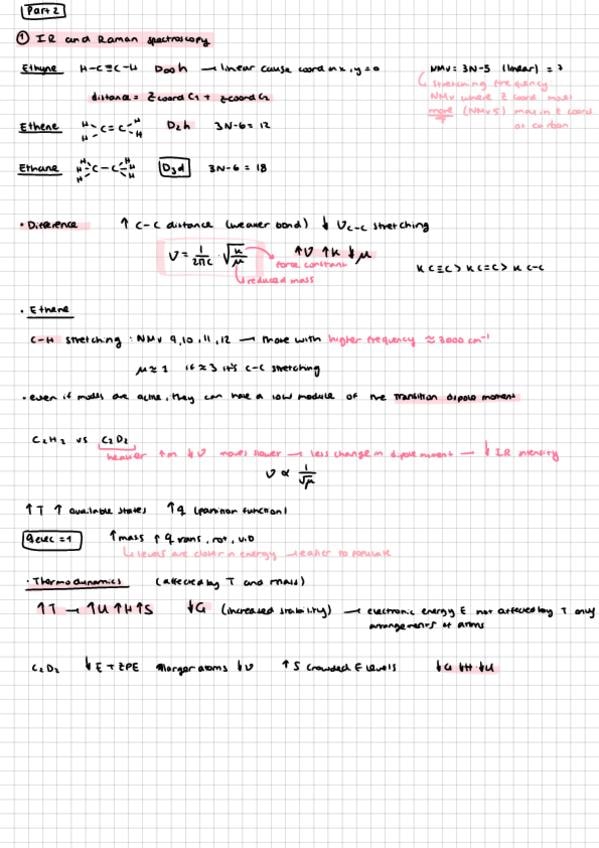 Part 2
① IR and Raman spectroscopy
Ethyne H-C≡C-H D∞h → linear cause coord in x,y=0 NMV = 3N-5 (linear) = 7
stretching frequency
NMV where z coord moves
more (NMV 5) max in z coord
of carbon
distance = z coord C1 + z coord C2
Ethene H H C=C H H D2h 3N-6 = 12
Ethane H H H C-C H H H D3d 3N-6 = 18
• Difference ↑ C-C distance (weaker bond) ↓ νC-C stretching
ν = 1/2πc · √k/μ ↑ν ↑k ↓μ
force constant
reduced mass
k C≡C > k C=C > k C-C
• Ethene
C-H stretching : NMV 9,10,11,12 → those with higher frequency ≈ 3000 cm⁻¹
μ ≈ 1 if ≈ 3 it's C-C stretching
• even if modes are active, they can have a low module of the transition dipole moment
C2H2 vs C2D2
heavier ↑m ↓ν moves slower → less change in dipole moment → ↓ IR intensity
ν ∝ 1/√μ
↑T ↑ available states ↑q (partition function)
qelec = 1 ↑mass ↑q trans, rot, vib
↳ levels are closer in energy → easier to populate
• Thermodynamics (affected by T and mass)
↑T → ↑U ↑H ↑S ↓G (increased stability) → electronic energy E not affected by T only
arrangements of atoms
C2D2 ↓E + ZPE larger atoms ↓ν ↑S crowded E levels ↓G ↓H ↓U